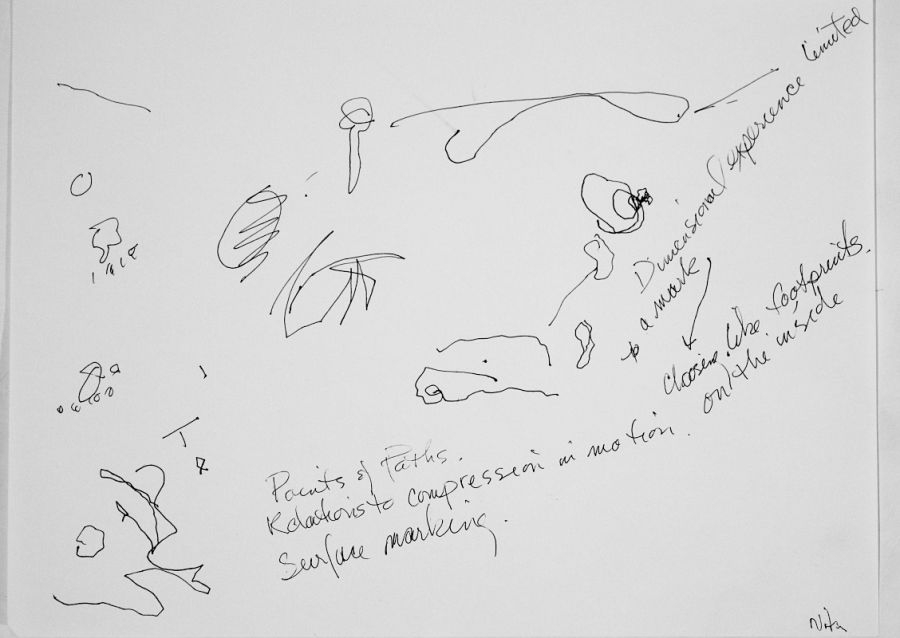 Dimensional experience limited
to a mark
choosing like footprints.
on the inside
Points & Paths.
Relations to compression in motion.
Surface marking.